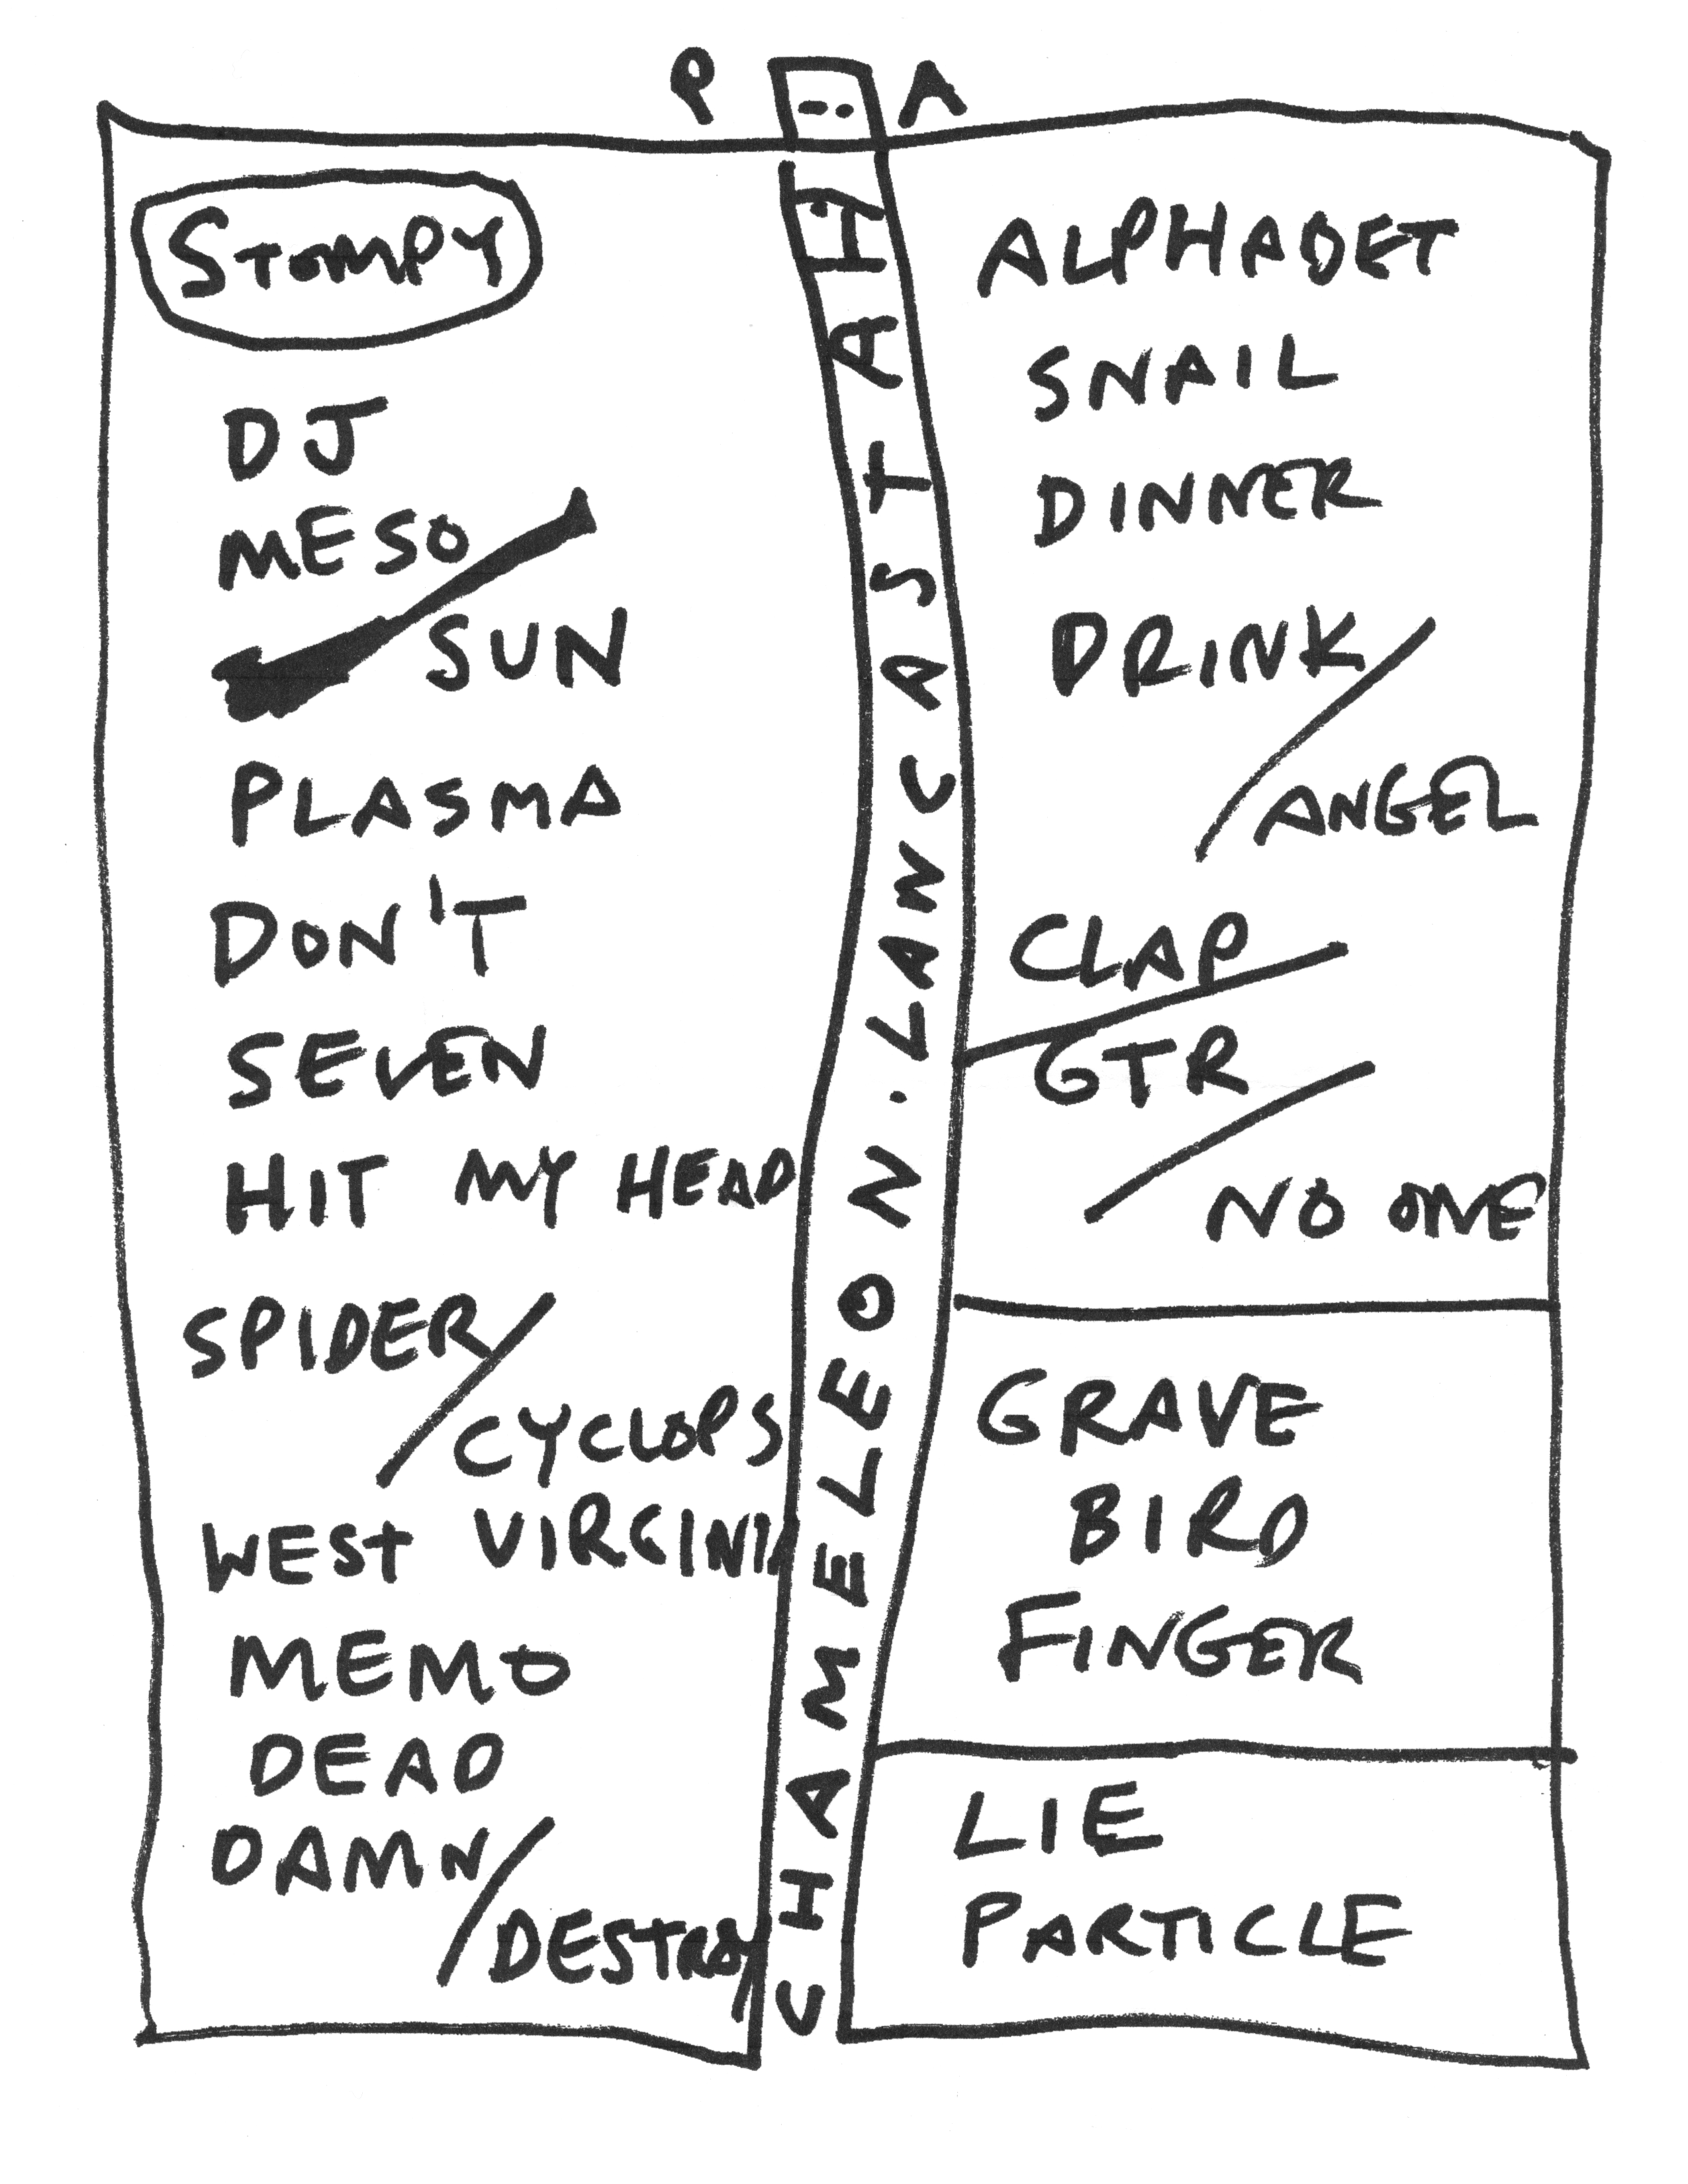 P : A
STOMPY
DJ
MESO
SUN
PLASMA
DON'T
SEVEN
HIT MY HEAD
SPIDER/
CYCLOPS
WEST VIRGINIA
MEMO
DEAD
DAMN/
DESTROY
CHAMELEON. LANCASTAH
ALPHABET
SNAIL
DINNER
DRINK/
ANGEL
CLAP
GTR
/NO ONE
GRAVE
BIRD
FINGER
LIE
PARTICLE